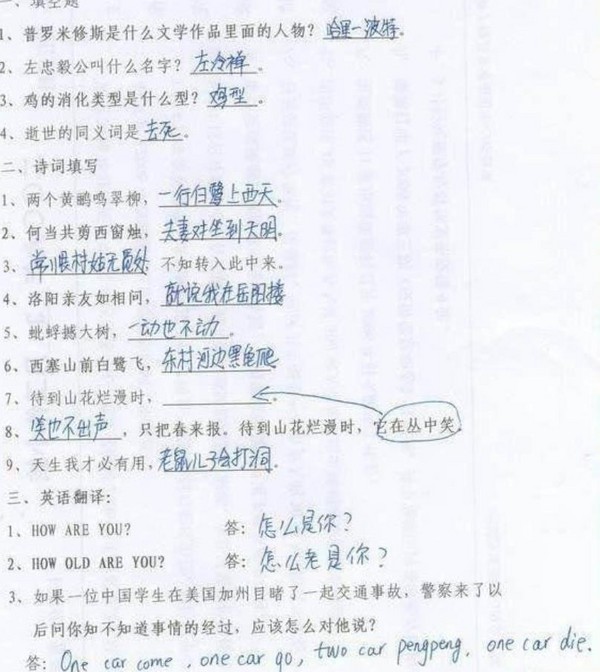 一、填空题
1、普罗米修斯是什么文学作品里面的人物？哈里一波特。
2、左忠毅公叫什么名字？左冷禅。
3、鸡的消化类型是什么型？鸡型。
4、逝世的同义词是去死。
二、诗词填写
1、两个黄鹂鸣翠柳，一行白鹭上西天。
2、何当共剪西窗烛，夫妻对坐到天明。
3、常恨村姑无觅处 不知转入此中来。
4、洛阳亲友如相问，就说我在岳阳楼
5、蚍蜉撼大树，一动也不动。
6、西塞山前白鹭飞，东村河边黑龟爬
7、待到山花烂漫时，____________。
8、笑也不出声，只把春来报。待到山花烂漫时，它在丛中笑。
9、天生我才必有用，老鼠儿子会打洞。
三、英语翻译：
1、HOW ARE YOU? 答：怎么是你？
2、HOW OLD ARE YOU? 答：怎么老是你？
3、如果一位中国学生在美国加州目睹了一起交通事故，警察来了以
后问你知不知道事情的经过，应该怎么对他说？
答：One car come , one car go, two car pengpeng, one car die.